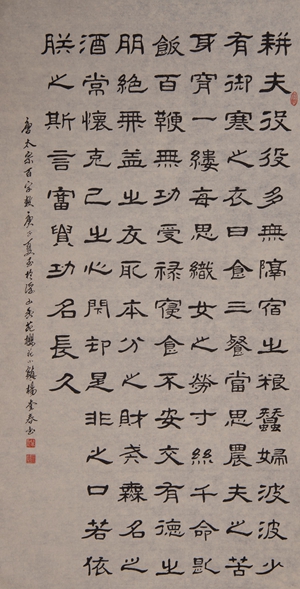 耕夫役役多無隔宿之粮蠶婦波波少
有御寒之衣日食三餐當思農夫之苦
身穿一縷每思織女之勞寸絲千命匙
飯百鞭無功受祿寢食不安交有德之
朋絕無益之友取本分之財戒無名之
酒常懷克己之心閉却是非之口若依
朕之斯言富貴功名長久
唐太宗百字箴